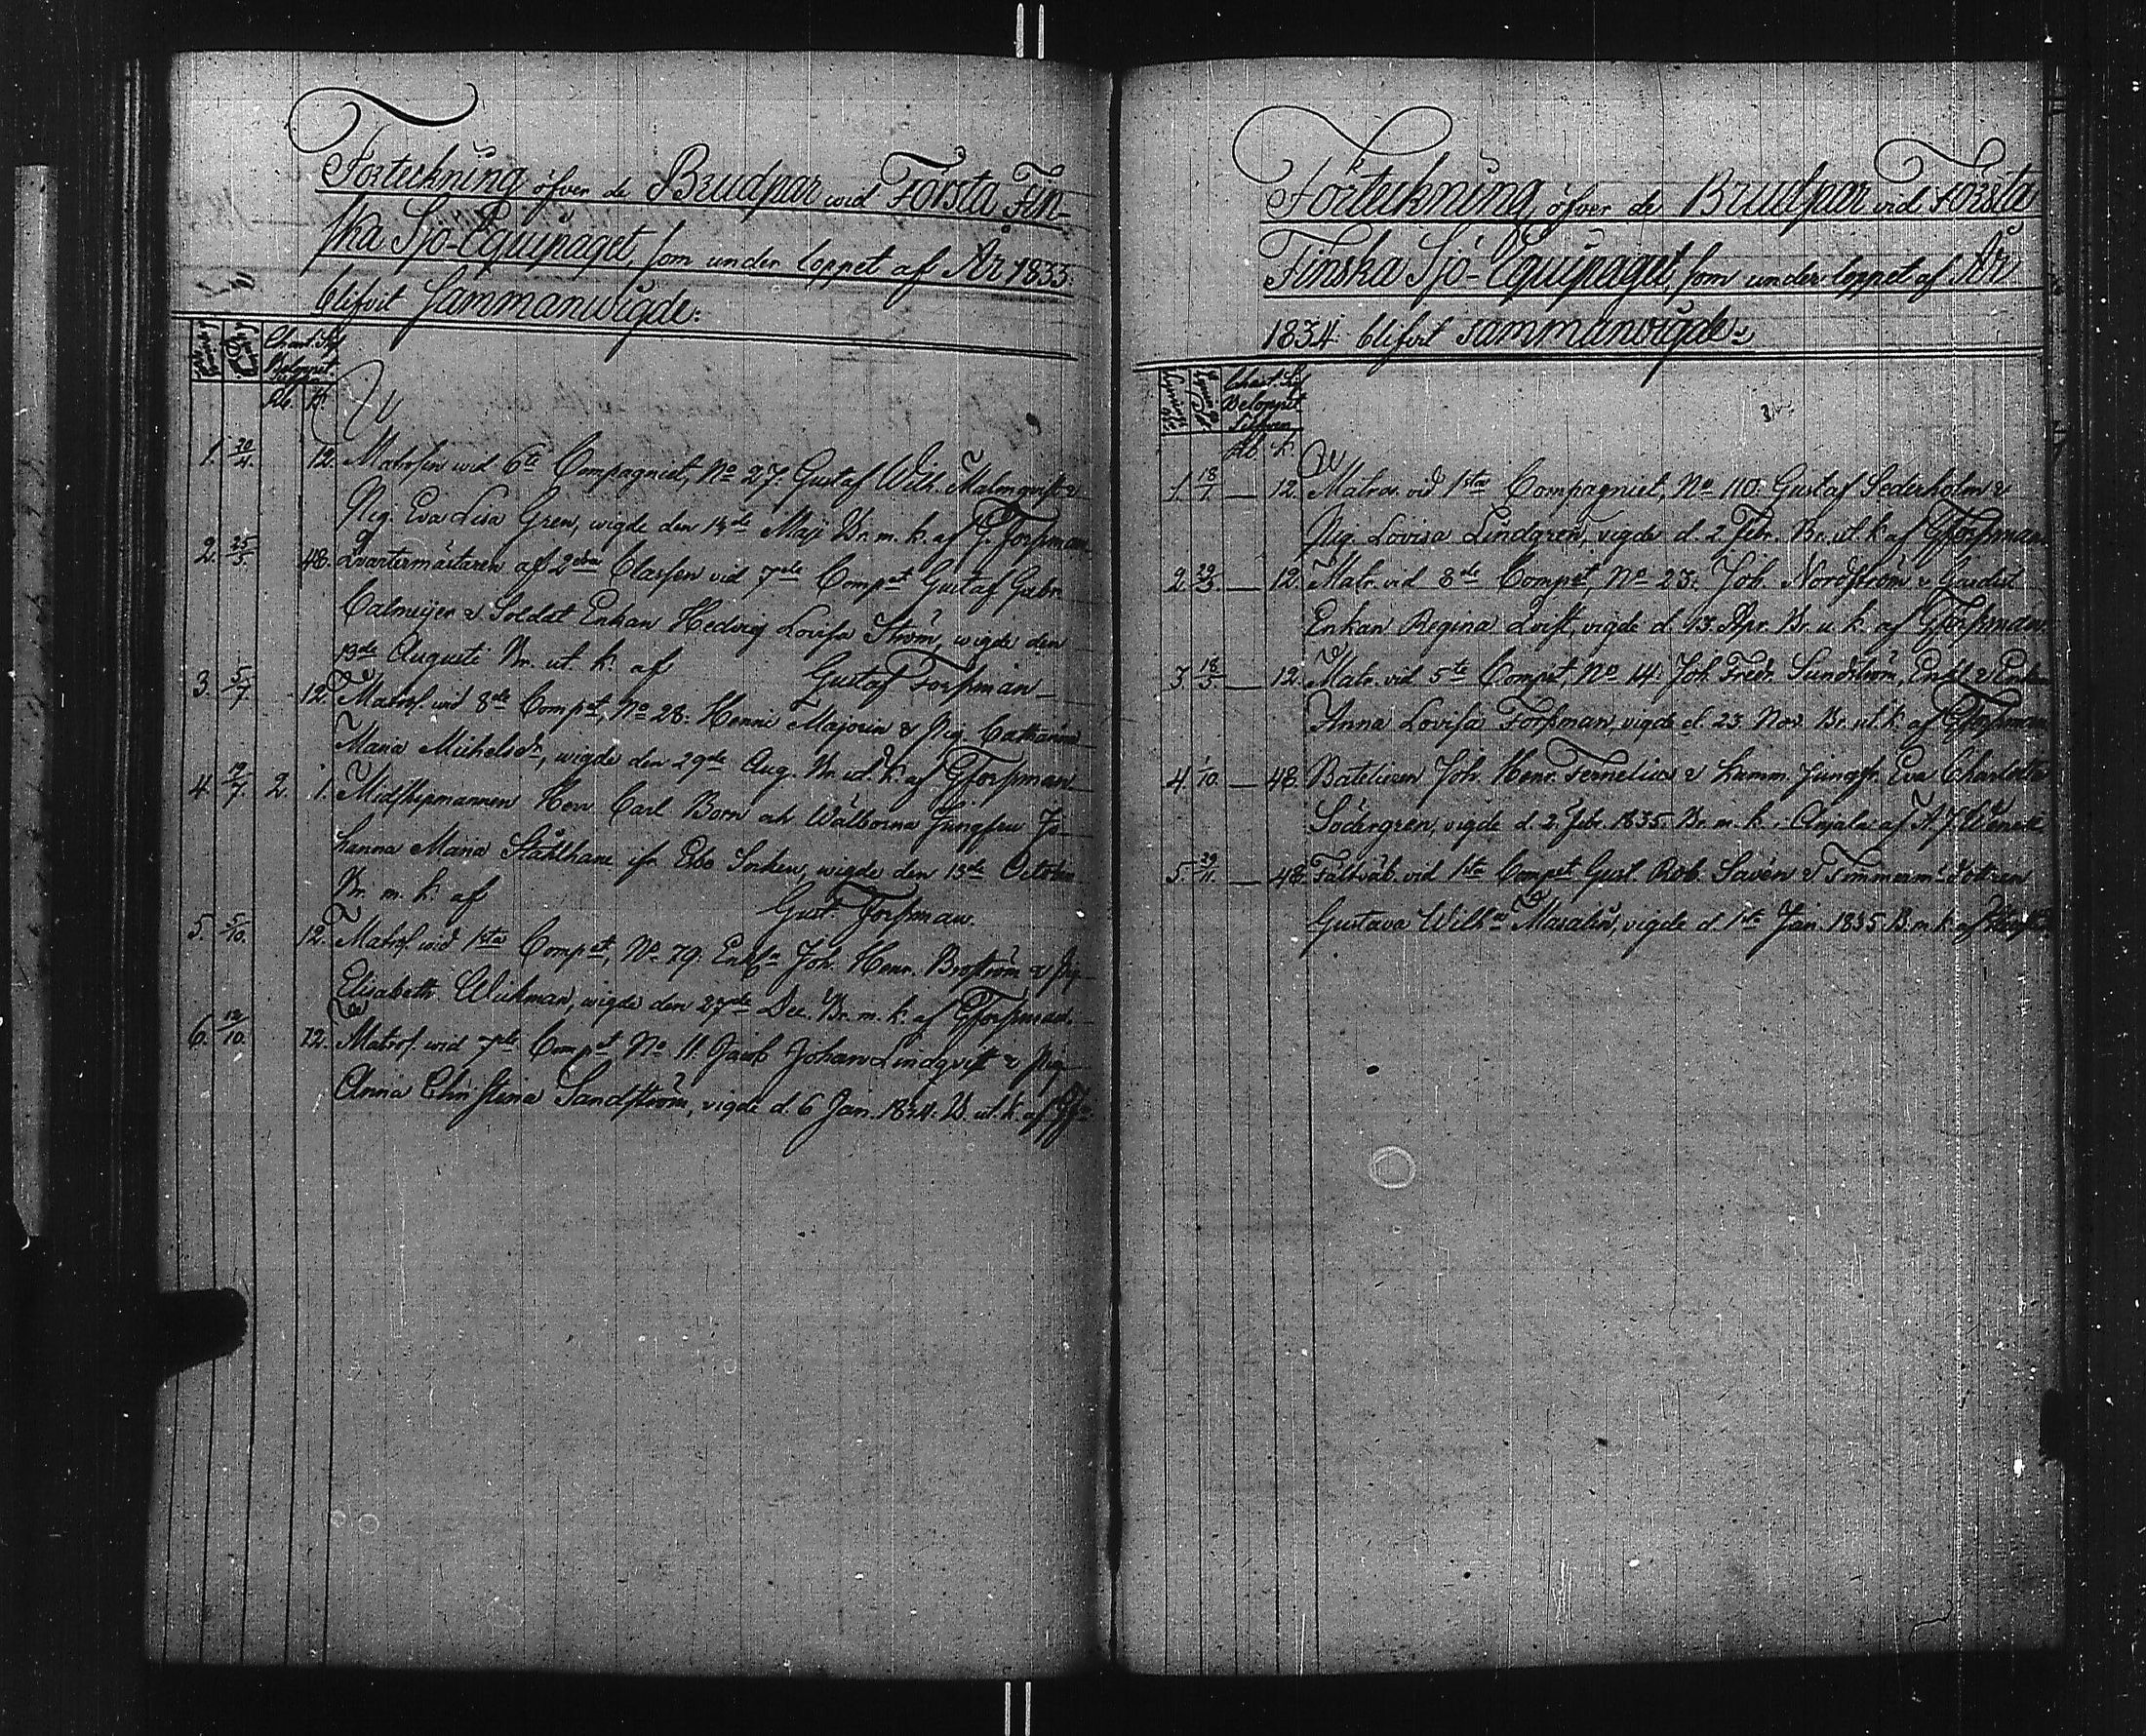 Förteckning öfver de Brudpar wid Första Fin-
ska Sjö-Equipaget, som under loppet af År 1833.
blifvit Sammanwigde:
Rb. K.
1. 20/4. 12. Matrosen wid 6te Compagniet, No 27. Gustaf Wilh. Malmqvist &
Pig. Eva Lisa Gren, wigde den 14de Maji Br. m. k. af G. Forssman
2. 25/5. 48. Qvartermästaren af 2dra Classen vid 7de Compet Gustaf Gabr.
Calmeijer & Soldat Enkan Hedvig Lovisa Ström, wigde den
13de Augusti Br. ut. k. af Gustaf Forssman
3. 5/7. 12. Matros. wid 8de Compet, No 28. Henric Majorin & Pig. Catharina
Maria Michelsdr, wigde den 29de Aug. Br. ut. k. af GForssman
4. 19/7. 2. 1. Midshipmannen Herr Carl Born och Wälborna Jungfru Jo-
hanna Maria Stålhane ifr. Esbo Socken, wigde den 13de October
Br. m. k. af Gust. Forssman.
5. 5/10. 12. Matros. wid 1sta Compet, No 79. Enkl. Joh. Henr. Broström & Pig.
Elisabeth Wickman, wigde den 27de Dec. Br. m. k. af GForssman.
6. 12/10. 12. Matros. wid 7de Compet No 11. Jacob Johan Lindqvist & Pig.
Anna Christina Sandström, vigde d. 6 Jan. 1834. B. ut. k. af
Förteckning öfver de Brudpar vid Första
Finska Sjö-Equipaget, som under loppet af År
1834 blifvit sammanvigde:
Beloppet
Rb. K.
1. 18/1. — 12. Matros. vid 1sta Compagniet, No 110. Gustaf Sederholm &
Pig. Lovisa Lindgren, vigde d. 2 Febr. Br. ut. k. af GForssman.
2. 29/3. — 12. Matr. vid 8de Compet, No 23. Joh. Nordström & Gardist
Enkan Regina Qvist, vigde d. 13. Apr. Br. u. k. af GForssman.
3. 18/5. — 12. Matr. vid 5te Compet, No 14. Joh. Fredr. Sundström, Enkl. & Enkan
Anna Lovisa Forssman, vigde d. 23. Nov. Br. ut. k. af GForssman
4. 1/10. — 48. Batelören Joh. Henr. Fernelius & Kamm. Jungfr. Eva Charlotta
Södergren, vigde d. 2. Febr. 1835. Br. m. k. i Anjala af
5. 29/11. — 48. Fältväb. vid 1sta Compet Gust. Rob. Savén & Timmerm. dottren
Gustava Wilha Masalin, vigde d. 1sta Jan. 1835 B. m. k. af